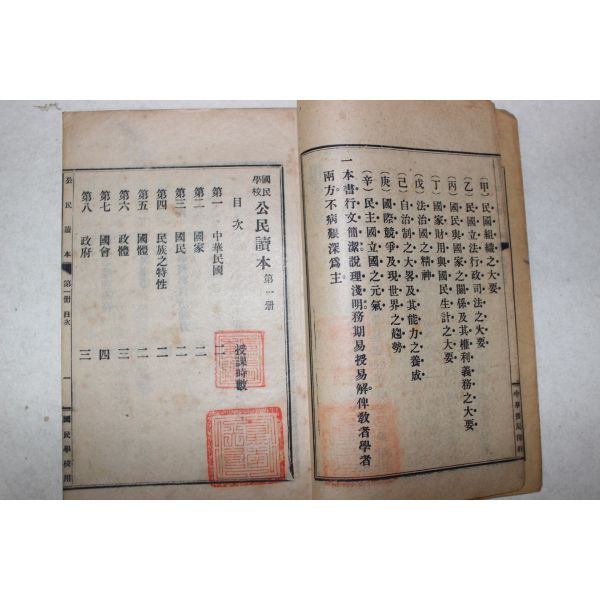 (甲)民國組織之大要
(乙)民國立法行政司法之大要
(丙)國民與國家之關係及其權利義務之大要
(丁)國家財用與國民生計之大要
(戊)法治國之精神
(己)自治制之大畧及其能力之養成
(庚)國際競爭及現世界之趨勢
(辛)民主國立國之元氣
一本書行文簡潔說理淺明務期易授易解俾教者學者
兩方不病艱深爲主
國民學校 公民讀本 第一册
目次 授課時數
第一 中華民國 二
第二 國家 二
第三 國民 二
第四 民族之特性 二
第五 國體 二
第六 政體 三
第七 國會 四
第八 政府 三
公民讀本 第一册 目次 一 國民學校用